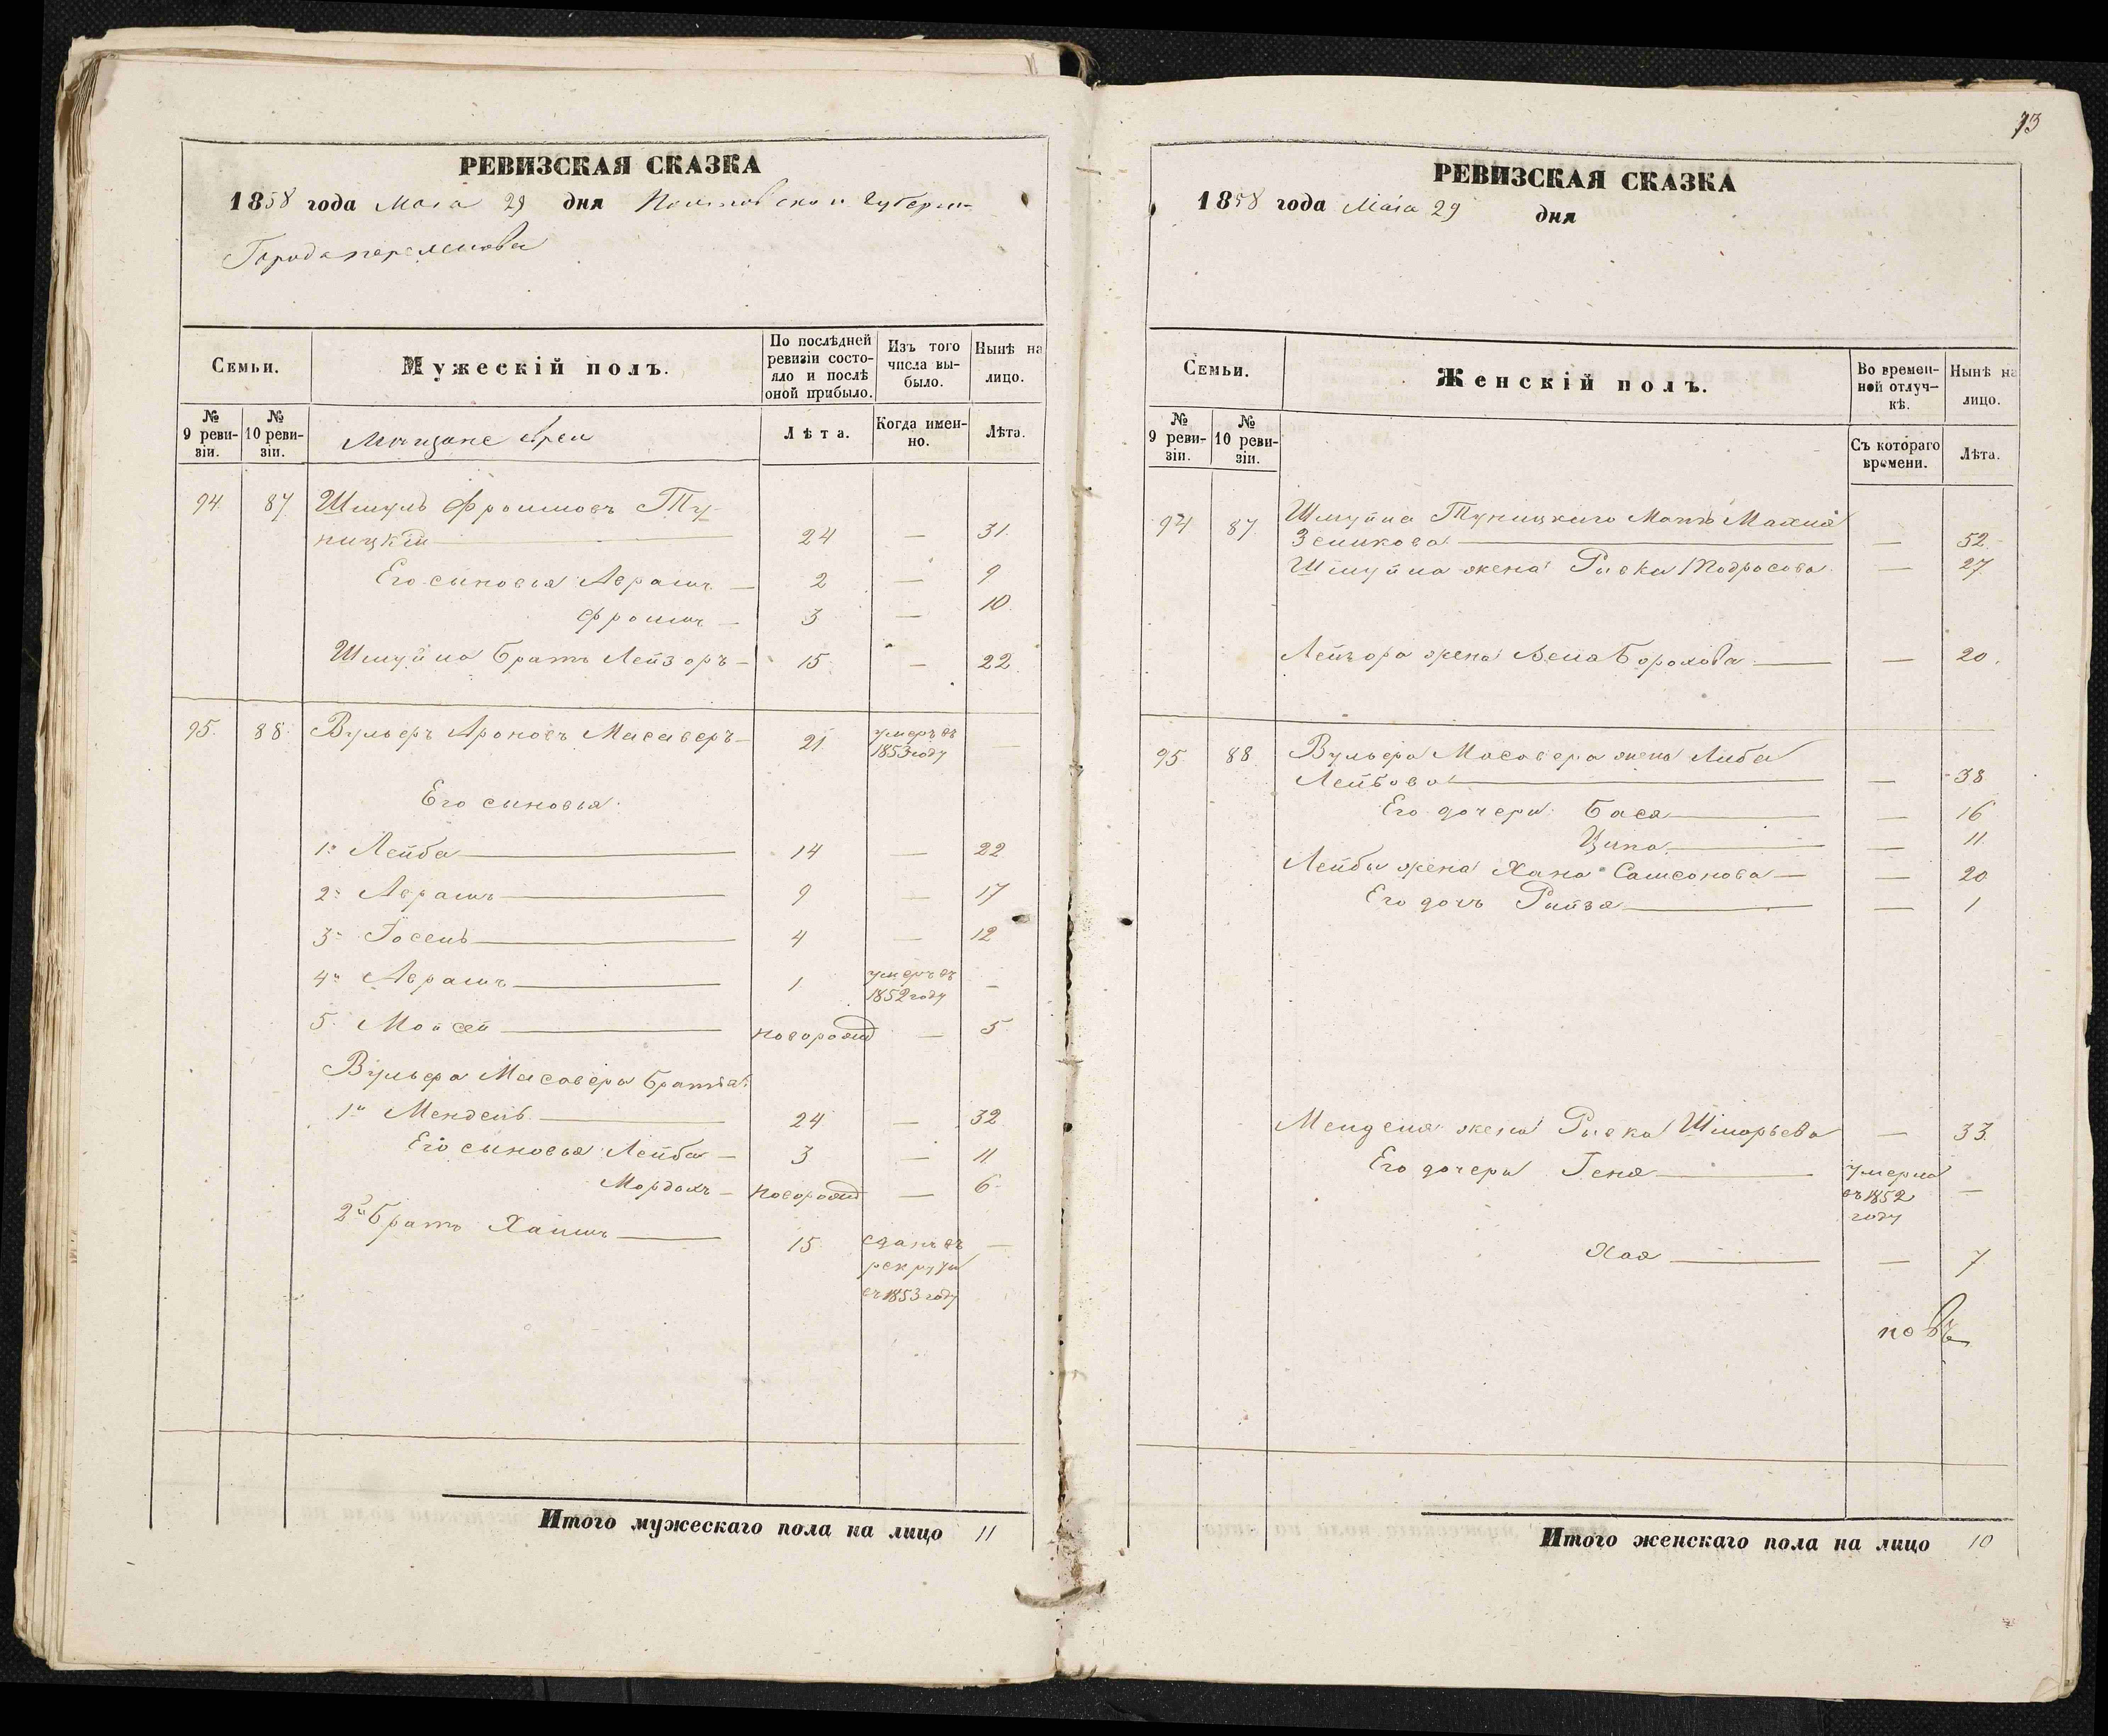 РЕВИЗСКАЯ СКАЗКА
1858 года Мая 29 дня Полтавской губерн-
Города
Семьи.
Мужескій полъ.
По послѣдней ревизіи состо-яло и послѣ оной прибыло.
Изъ того числа вы-было.
Нынѣ на лицо.
№ 9 реви-зіи.
№ 10 реви-зіи.
Мещане евреи
Лѣта.
Когда имен-но.
Лѣта.
94. 87 Шмуль Фроимовъ Ту-
ницкій 24 — 31.
Его сыновья Аврамъ — 2 — 9
Фроимъ — 3 — 10.
Шмуйла братъ Лейзоръ — 15. — 22.
95. 88. Вульфъ Ароновъ Масаверъ — 21 умеръ въ 1853 году —
Его сыновья:
1й Лейба 14 — 22
2й Аврамъ 9 — 17
3й Іосель 4 — 12
4й Аврамъ 1 умеръ въ 1852 году —
5. Мойсей новорожд — 5
Вульфа Масавера братья:
1й Мендель 24 — 32
Его сыновья Лейба — 3 — 11
Мордахъ — новорожд — 6
2й братъ Хаимъ 15. сданъ въ рекруты въ 1853 году —
Итого мужескаго пола на лицо 11
73
РЕВИЗСКАЯ СКАЗКА
1858 года Маія 29 дня
Семьи.
Женскій полъ.
Во времен-ной отлуч-кѣ.
Нынѣ на лицо.
№ 9 реви-зіи.
№ 10 реви-зіи.
Съ котораго времени.
Лѣта.
94 87 Шмуйла Туницкаго Мать Махля
Зеликова — 52.
Шмуйла жена Ривка — 27
Лейзора жена Борохова — — 20.
95. 88. Вульфа Масавера жена Либа
Лейбова — 38
Его дочери Бася — 16
Ципа — 11
Лейбы жена Хана Самсонова — — 20
Его дочь Рейзя — 1
Менделя жена Ривка Шморьева — 33.
Его дочери Геня умерла въ 1852 году —
Хая — 7
новъ
Итого женскаго пола на лицо 10